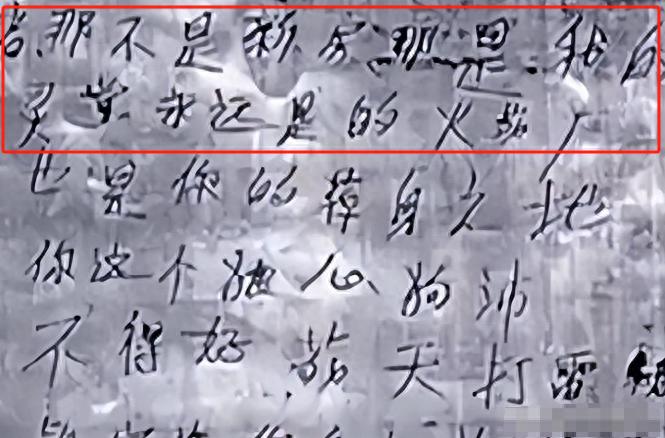 那不是新房那是我的
灵堂永远是的火葬厂
也是你的葬身之地
你这个狼心狗沛
不得好 天打雷